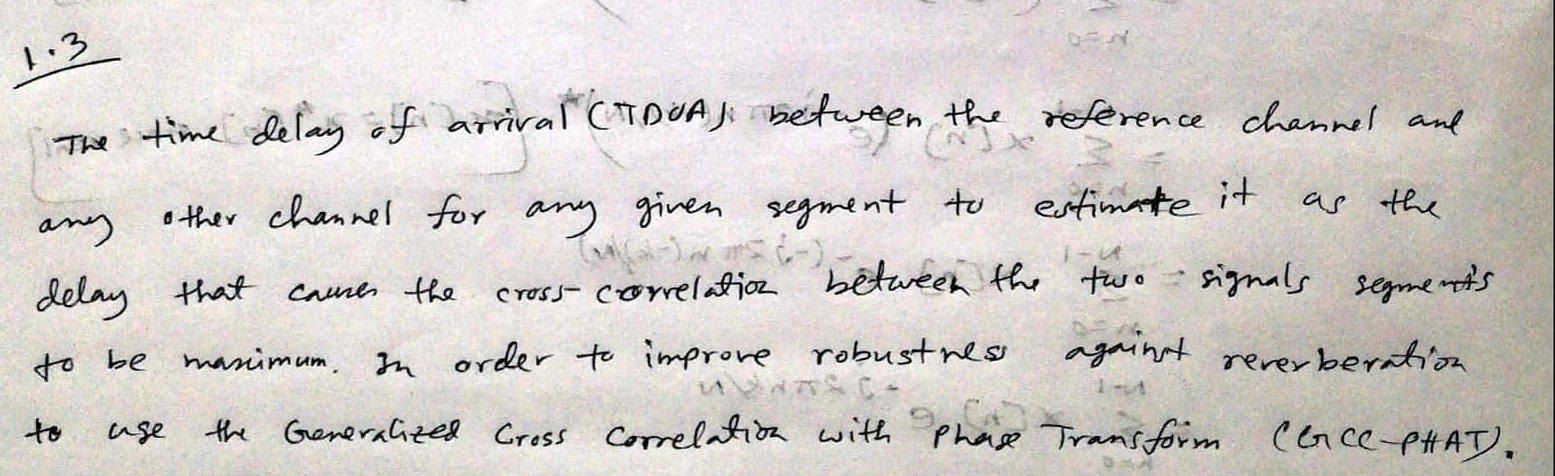 1.3
The time delay of arrival (TDOA) between the reference channel and
any other channel for any given segment to estimate it as the
delay that causes the cross-correlation between the two signals segments
to be maximum. In order to improve robustness against reverberation
to use the Generalized Cross Correlation with Phase Transform (GCC-PHAT).